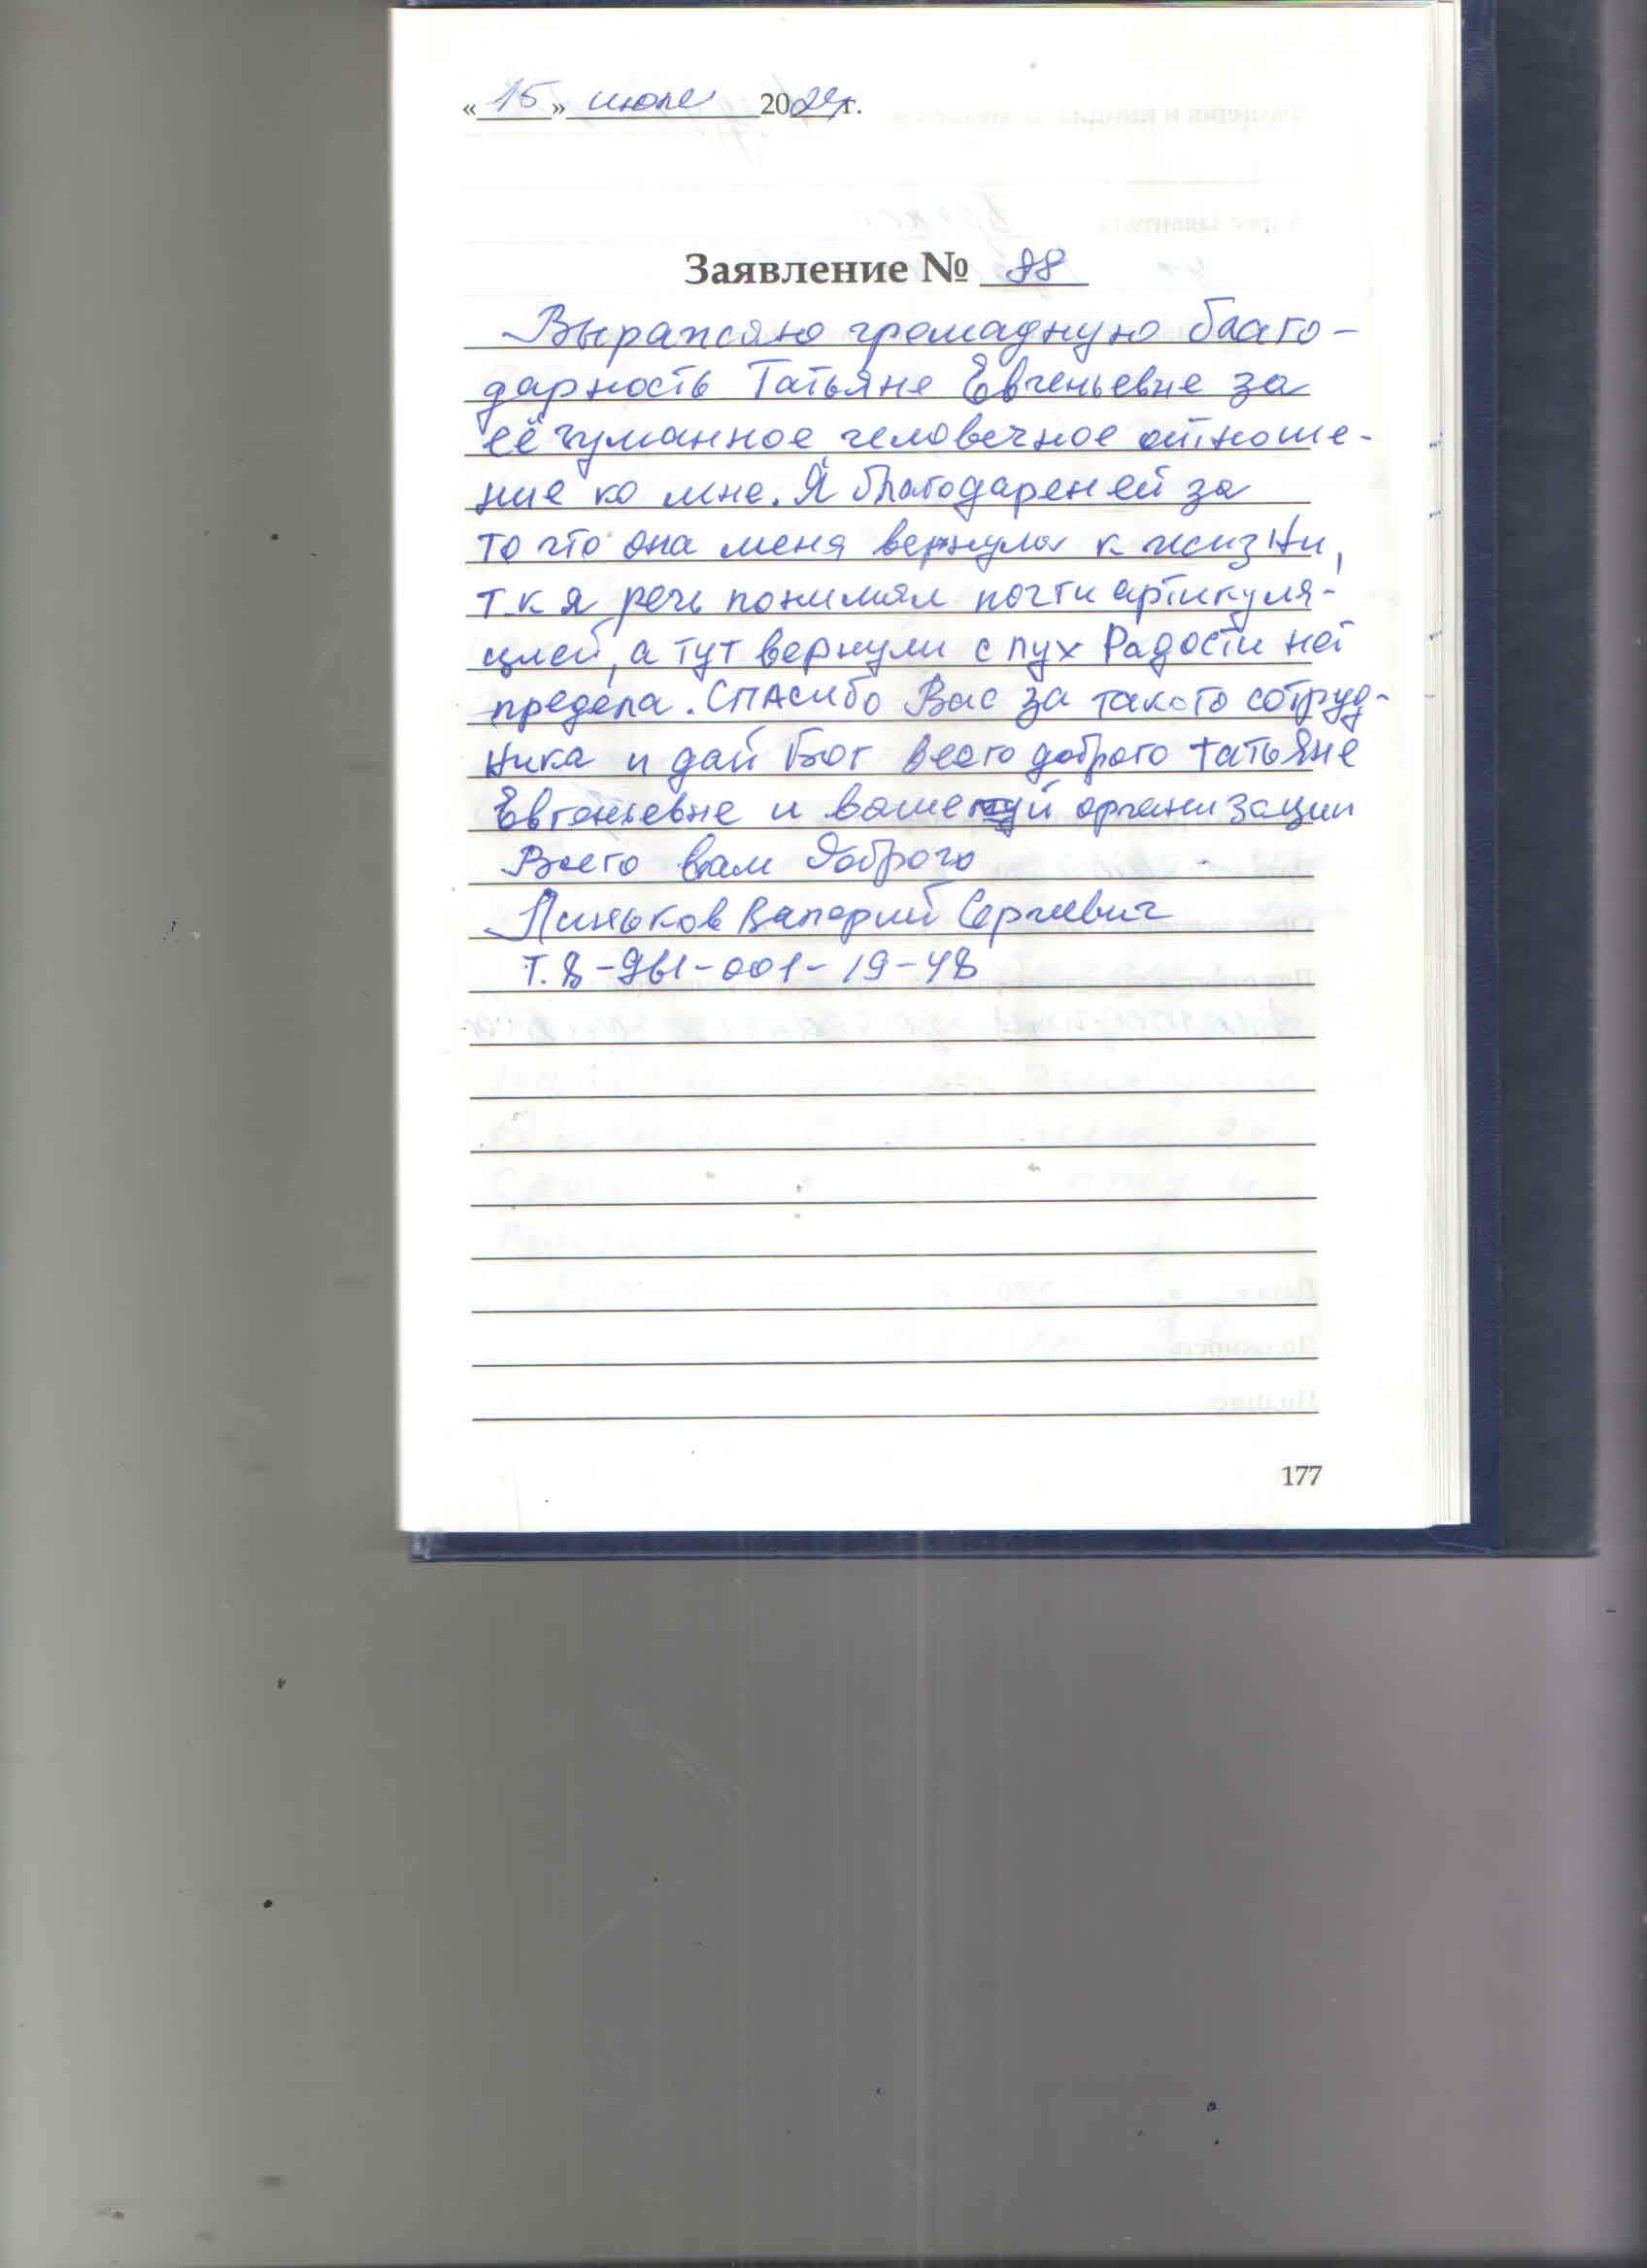 «15» июле 2024г.
Заявление № 88
Выражаю громадную благо-
дарность Татьяне Евгеньевне за
её гуманное человечное отноше-
ние ко мне. Я благодарен ей за
то что она меня вернула к жизни,
т.к я речь понимал почти артикуля-
цией, а тут вернули слух Радости нет
предела. СПАСибо Вас за такого сотруд-
ника и дай Бог всего доброго татьяне
Евгеньевне и вашей организации
Всего вам Доброго
Линьков Валерий Сергеевич
Т. 8-961-001-19-48
177